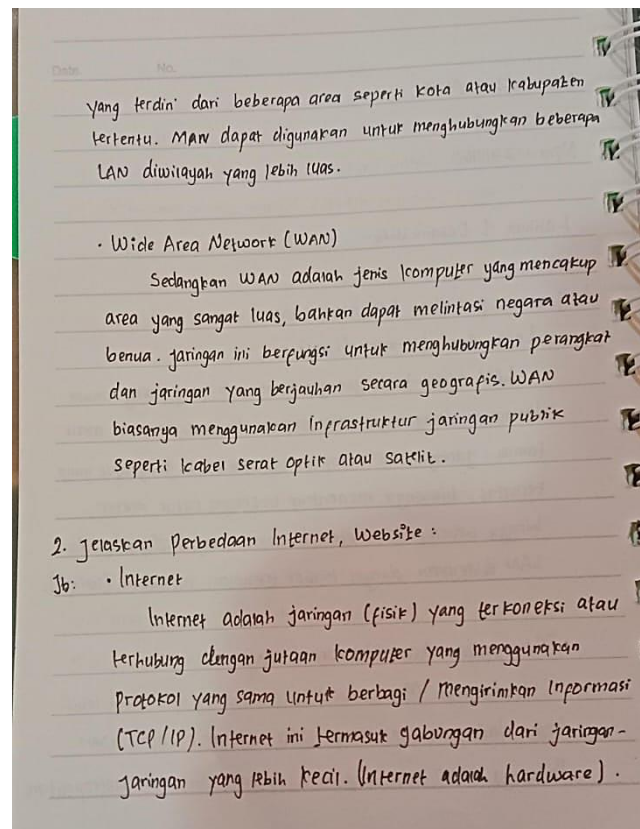 Date No.
yang terdiri dari beberapa area seperti kota atau kabupaten
tertentu. MAN dapat digunakan untuk menghubungkan beberapa
LAN diwilayah yang lebih luas.
• Wide Area Network (WAN)
Sedangkan WAN adalah jenis komputer yang mencakup
area yang sangat luas, bahkan dapat melintasi negara atau
benua. Jaringan ini berfungsi untuk menghubungkan perangkat
dan jaringan yang berjauhan secara geografis. WAN
biasanya menggunakan infrastruktur jaringan publik
seperti kabel serat optik atau satelit.
2. Jelaskan Perbedaan Internet, Website :
Jb: • Internet
Internet adalah jaringan (fisik) yang terkoneksi atau
terhubung dengan jutaan komputer yang menggunakan
Protokol yang sama untuk berbagi / mengirimkan Informasi
(TCP/IP). Internet ini termasuk gabungan dari jaringan-
jaringan yang lebih kecil. (Internet adalah hardware).